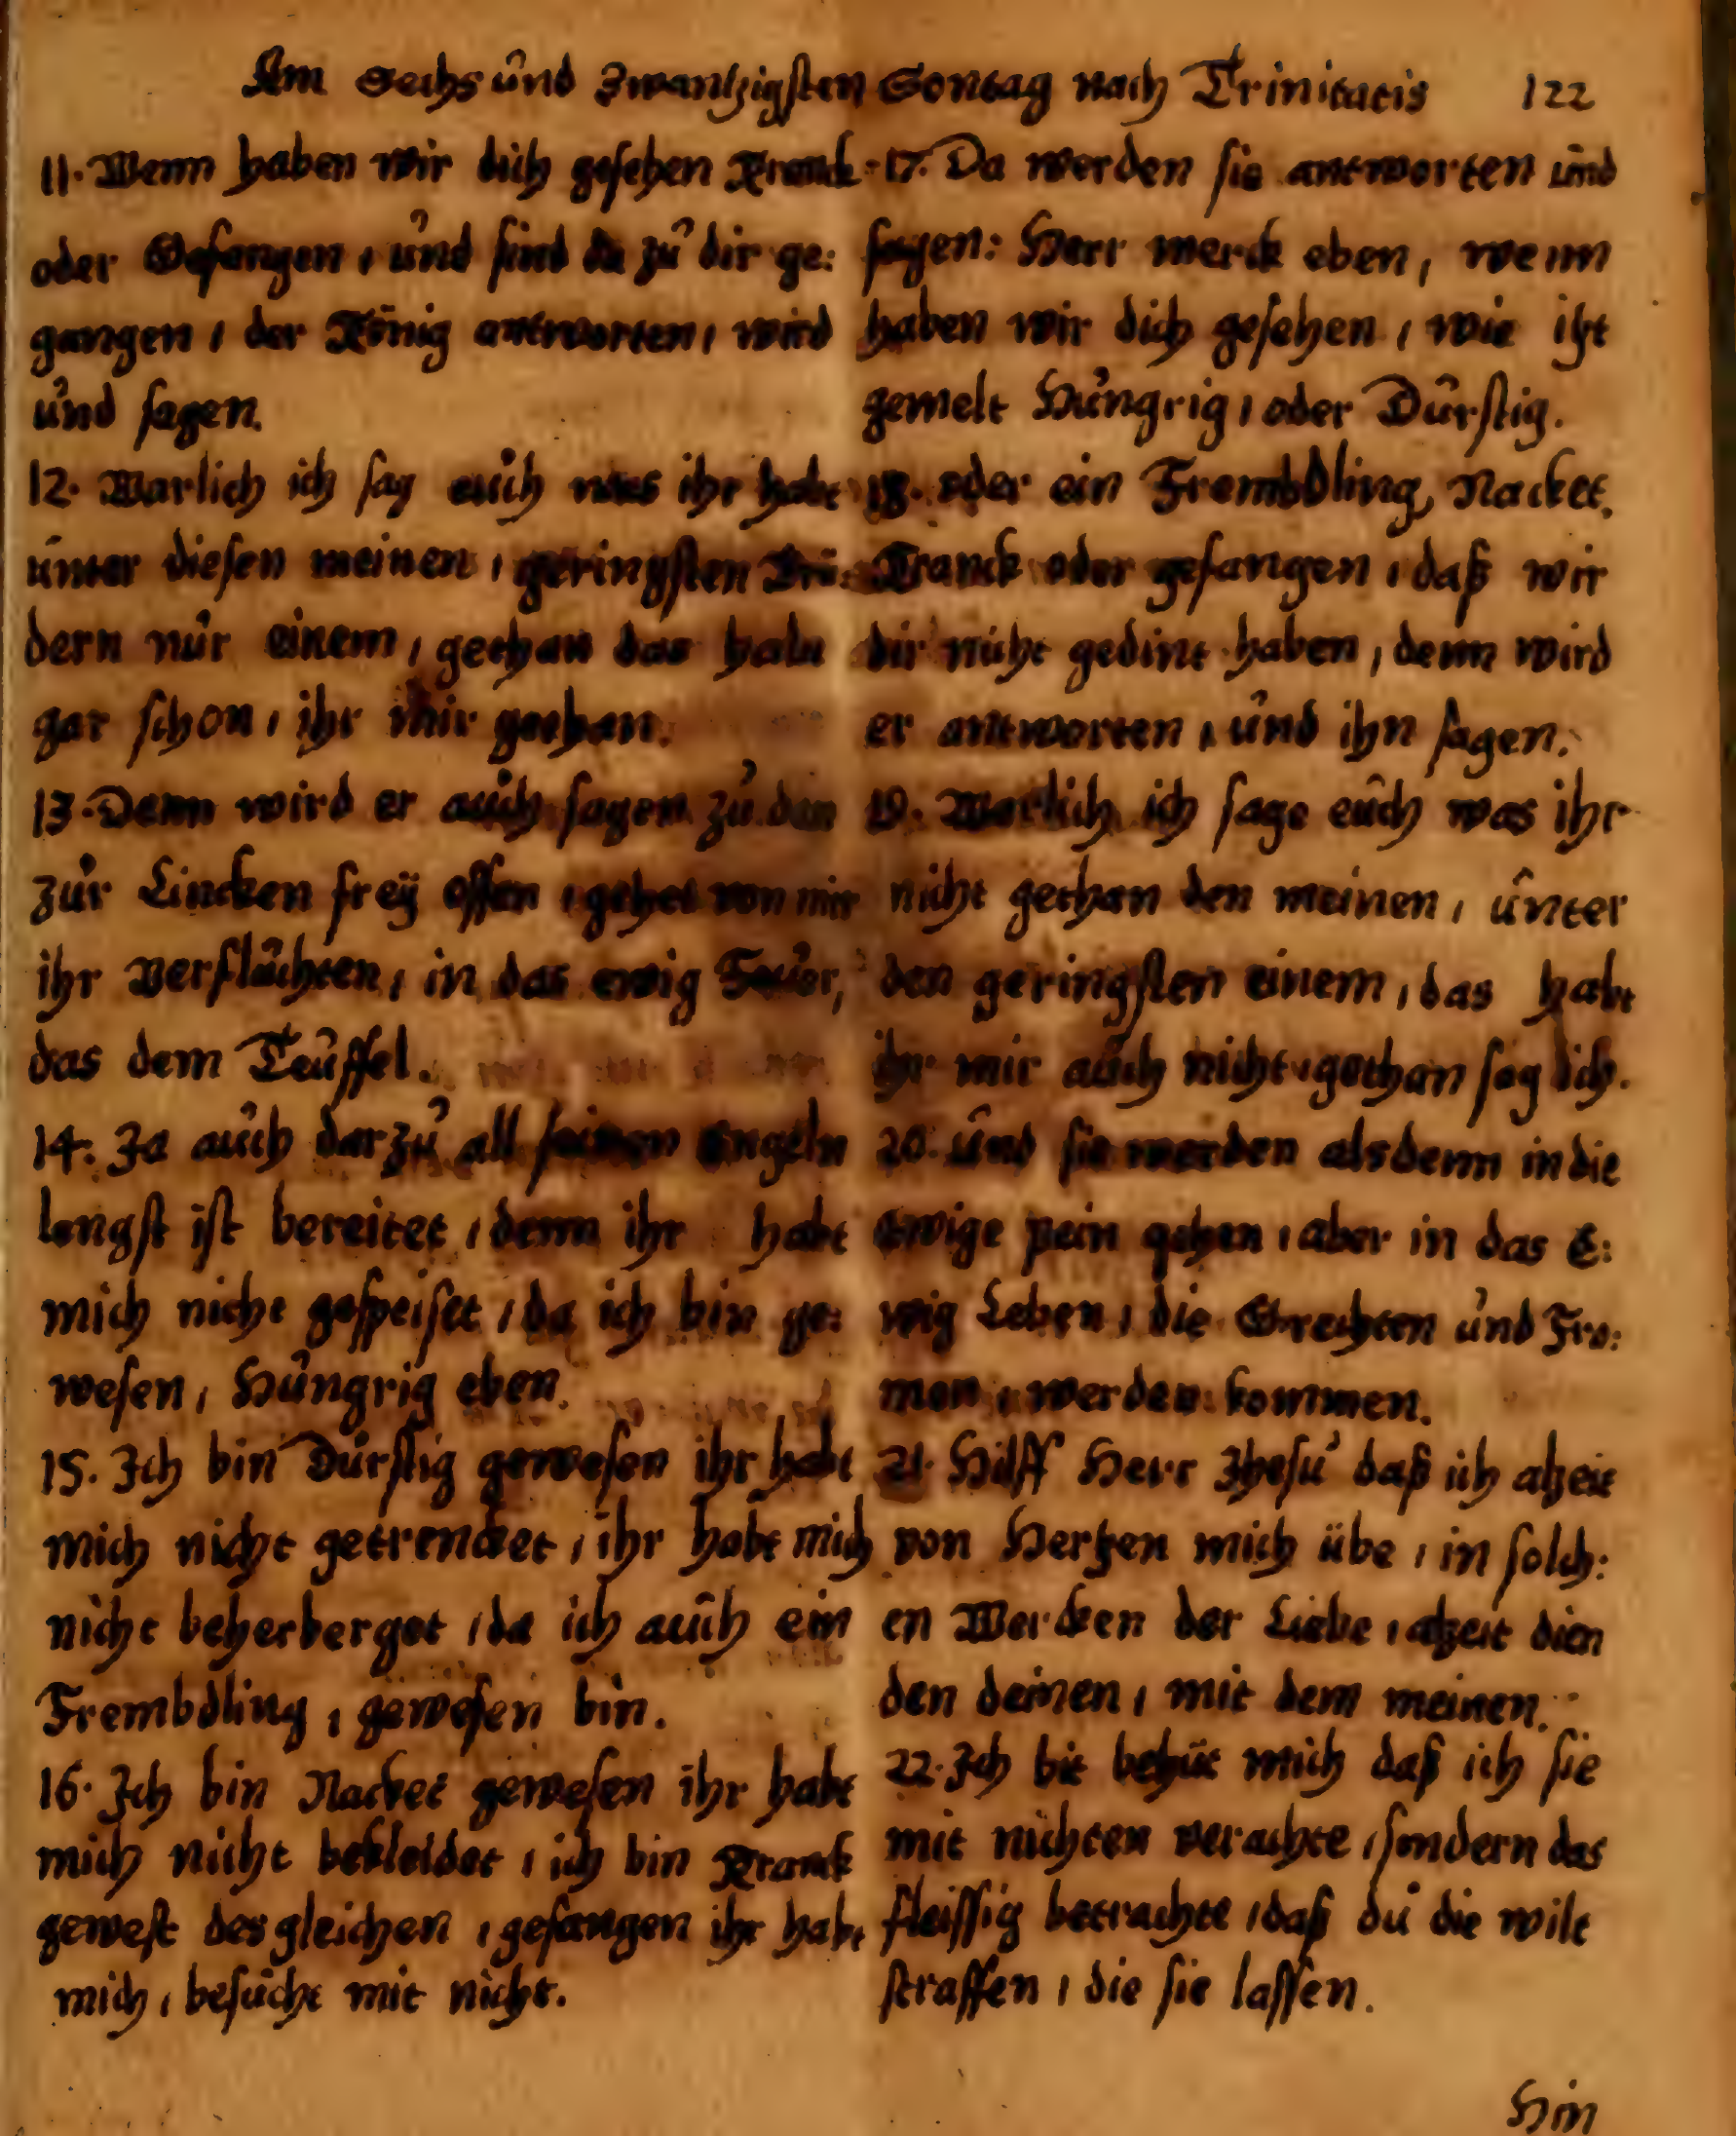 Am Sechs und Zwantzigsten Sontag nach Trinitatis 122
11. Wenn haben wir dich gesehen Kranck
oder Gefangen, und sind da zu dir ge:
gangen, der König antworten, wird
und sagen.
12. Warlich ich sag euch was ihr habt
unter diesen meinen, geringsten Brü:
dern nur einem, gethan das habt
gar schon, ihr mir gethan.
13. Denn wird er auch sagen zu den
zur Lincken frey offen, gehet von mir
ihr Verfluchten, in das ewig Feuer,
das dem Teuffel.
14. Ja auch darzu all seinen Engeln
lengst ist bereitet, denn ihr habt
mich nicht gespeiset, da ich bin ge:
wesen, Hungrig eben.
15. Ich bin Durstig gewesen ihr habt
mich nicht getrencket, ihr habt mich
nicht beherberget, da ich auch ein
Frembdling, gewesen bin.
16. Ich bin Nacket gewesen ihr habt
mich nicht bekleidet, ich bin Kranck
gewest desgleichen, gefangen ihr habt
mich, besucht mit nicht.
17. Da werden sie antworten und
sagen: Herr merck eben, wenn
haben wir dich gesehen, wie itzt
gemelt Hungrig, oder Durstig.
18. oder ein Frembdling, Nacket,
Kranck oder gefangen, daß wir
dir nicht gedint haben, denn wird
er antworten, und ihn sagen.
19. Warlich ich sage euch was ihr
nicht gethan den meinen, unter
den geringsten einem, das habt
ihr mir auch nicht, gethan sag ich.
20. und sie werden alsdenn in die
Ewige pein gehen, aber in das E:
wig Leben, die Grechten und Fro:
men, werden kommen.
21. Hilff Herr Jhesu daß ich alzeit
von Hertzen mich übe, in solch:
en Wercken der Liebe, alzeit dien
den deinen, mit dem meinen.
22. Ich bit behüt mich daß ich sie
mit nichten verachte, sondern das
fleissig betrachte, daß du die wilt
straffen, die sie lassen.
Hin